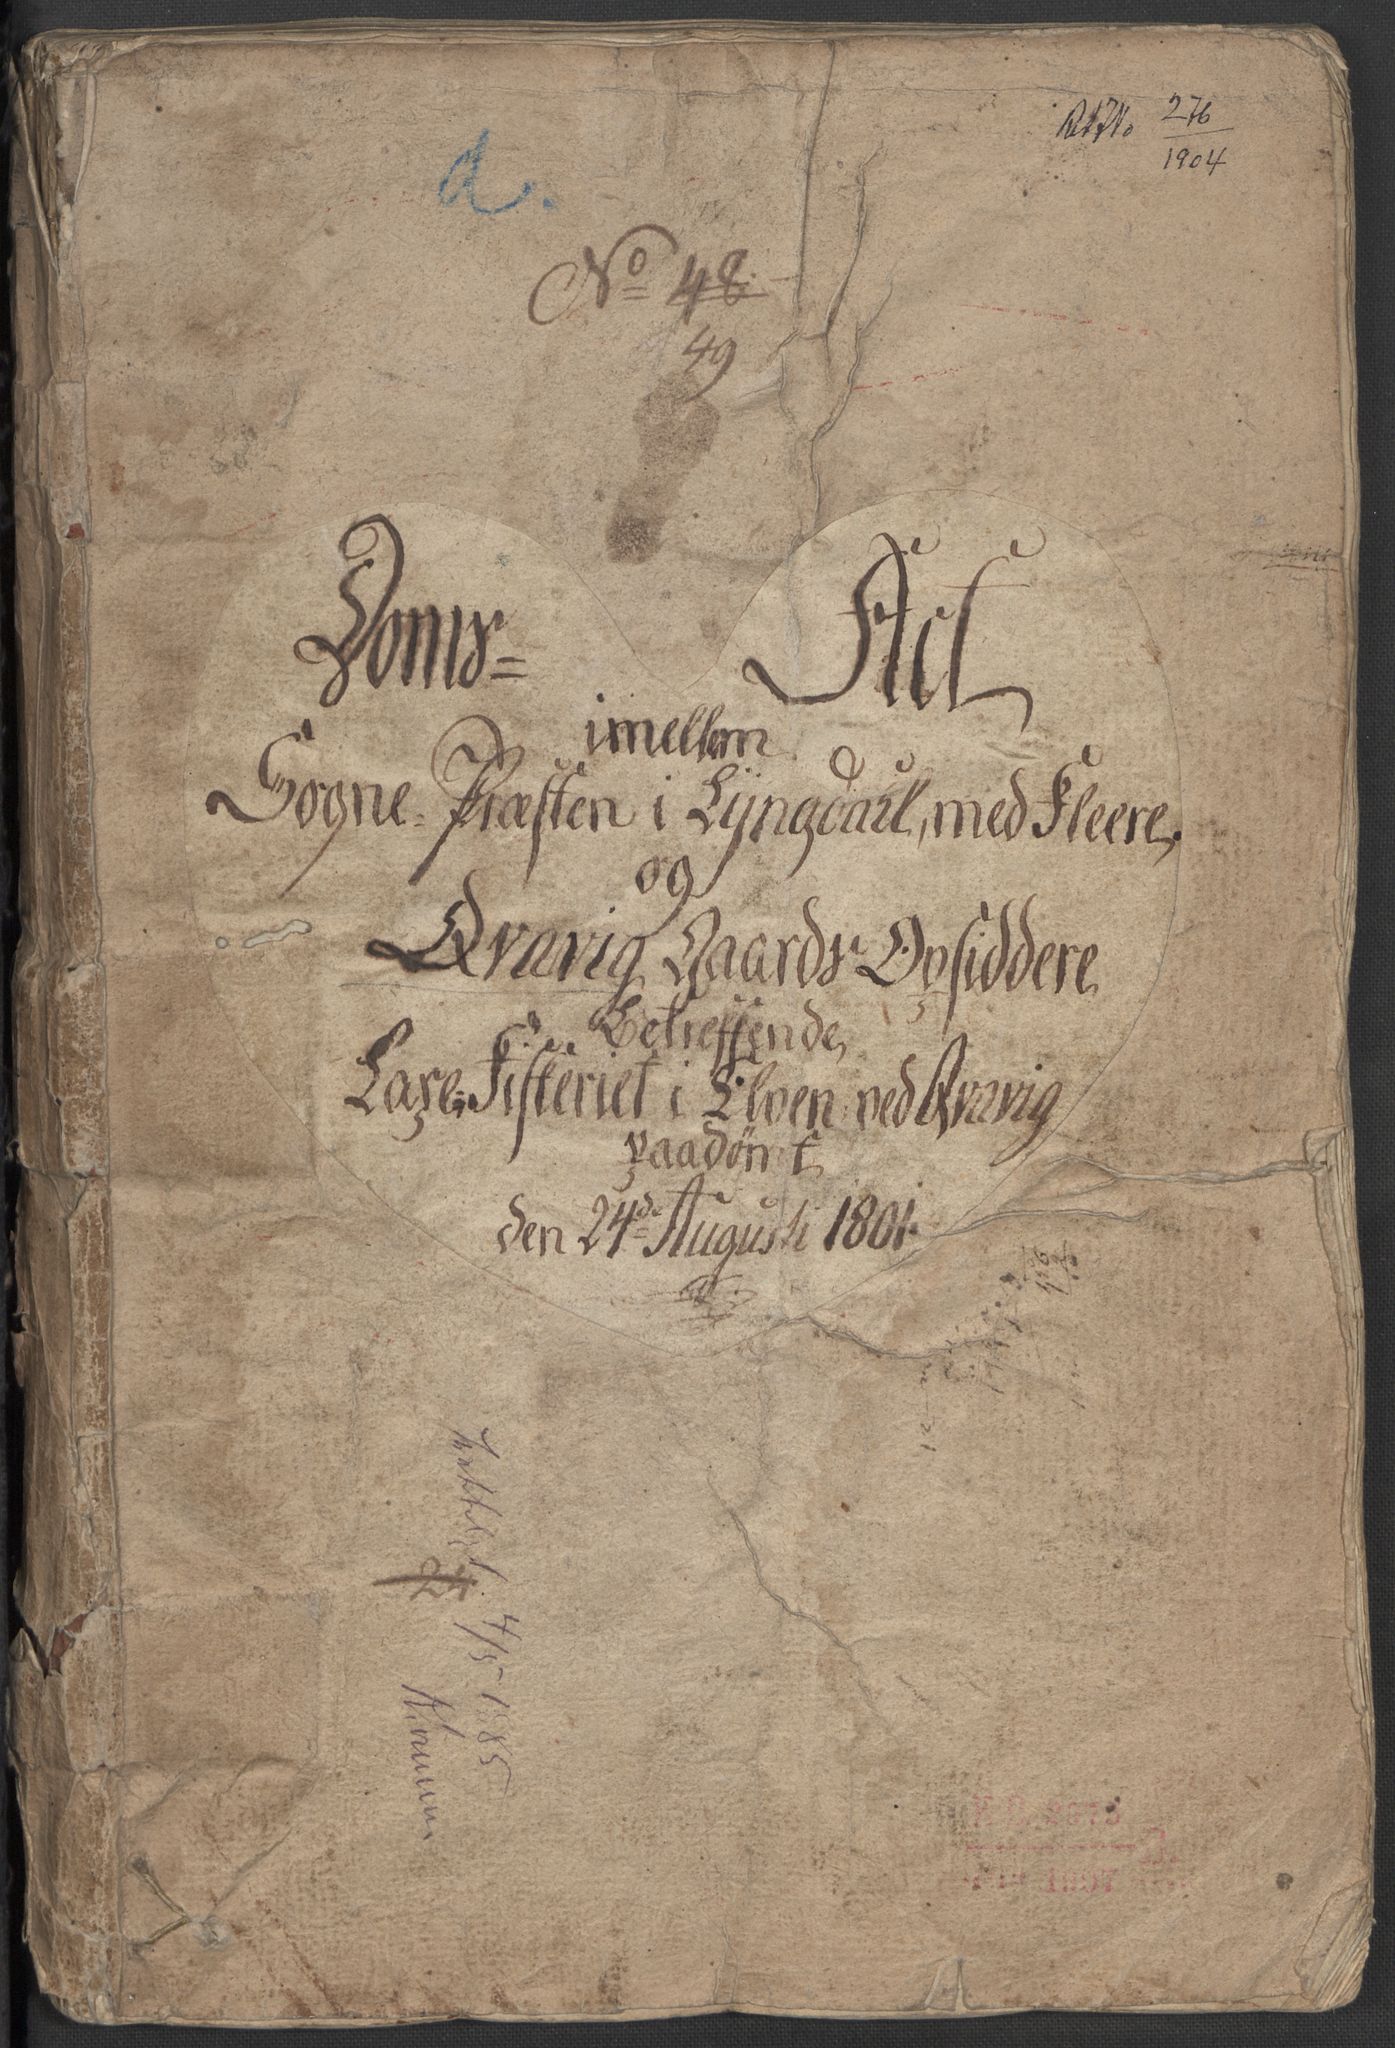 276
1904
a.
No 48.
49
Doms= Act
imellem
Sogne=Præsten i Lyngdall, med Fleere,
og
Qvavig Gaards Opsiddere
Betreffende
Laxe=Fiskeriet i Elven ved Qvavig
paadömt
den 24de Augusti 1801.
4/5 1885